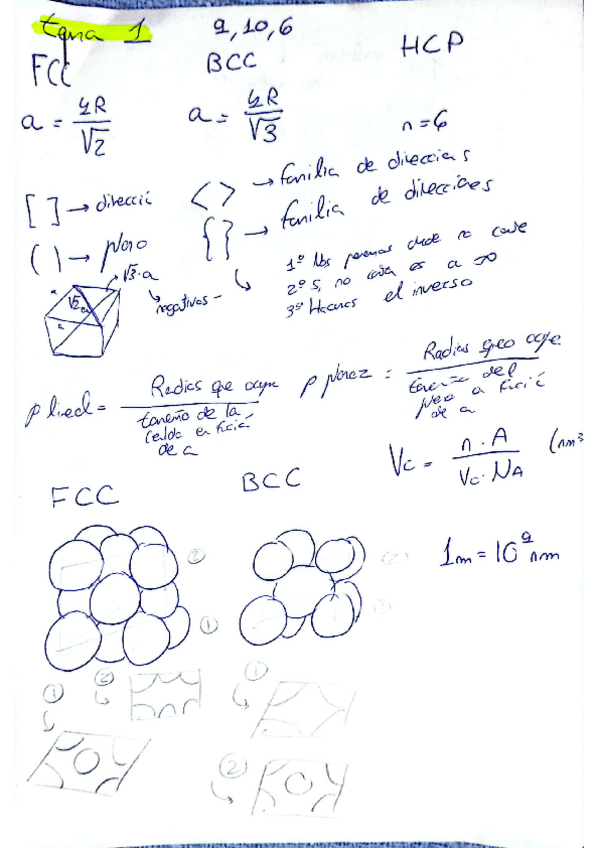 tema 1
9, 10, 6
FCC
BCC
HCP
a = 4R/√2
a = 4R/√3
n = 6
[ ] → direcció
< > → familia de direccions
( ) → plano
{ } → familia de direcciones
√3·a
√2a
a
a
negativos -
1º Nos ponemos donde no corte
2º Si no corta es a ∞
3º Hacemos el inverso
ρ lineal = Radios que ocupa / tamaño de la celda en funció de a
ρ planar = Radios que ocupa / tamaño del plano a funció de a
Vc = n · A / Vc · NA (nm3
FCC
BCC
1m = 10^9 nm
②
①
①
②
①
②